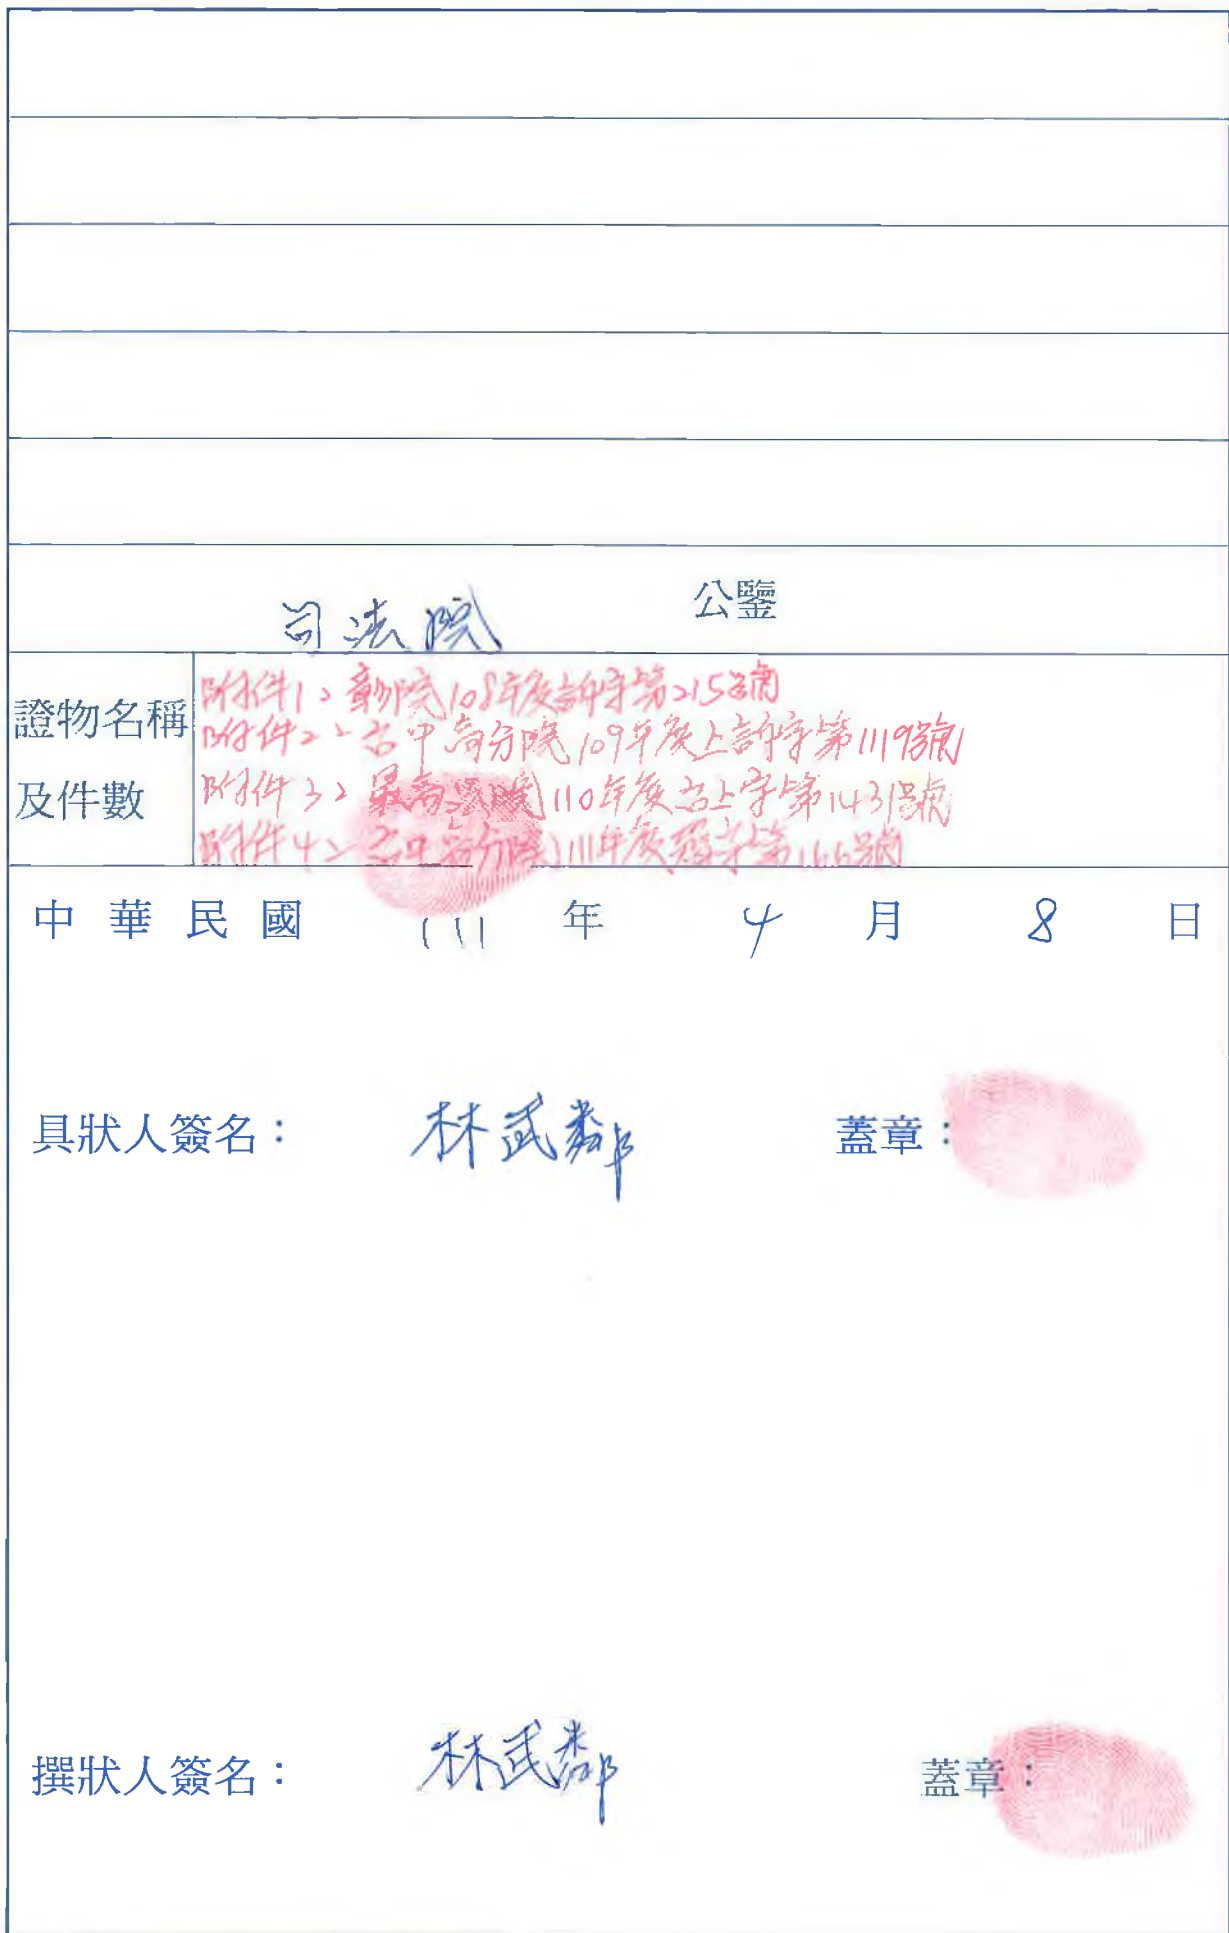 司法院 公鑒
證物名稱及件數
附件1、彰院108年度訴字第215號
附件2、台中高分院109年度上訴字第1119號
附件3、最高法院110年度台上字第1431號
附件4、台中高分院111年度聲字第166號
中華民國 111 年 4 月 8 日
具狀人簽名： 林武鄰 蓋章：
撰狀人簽名： 林武鄰 蓋章：